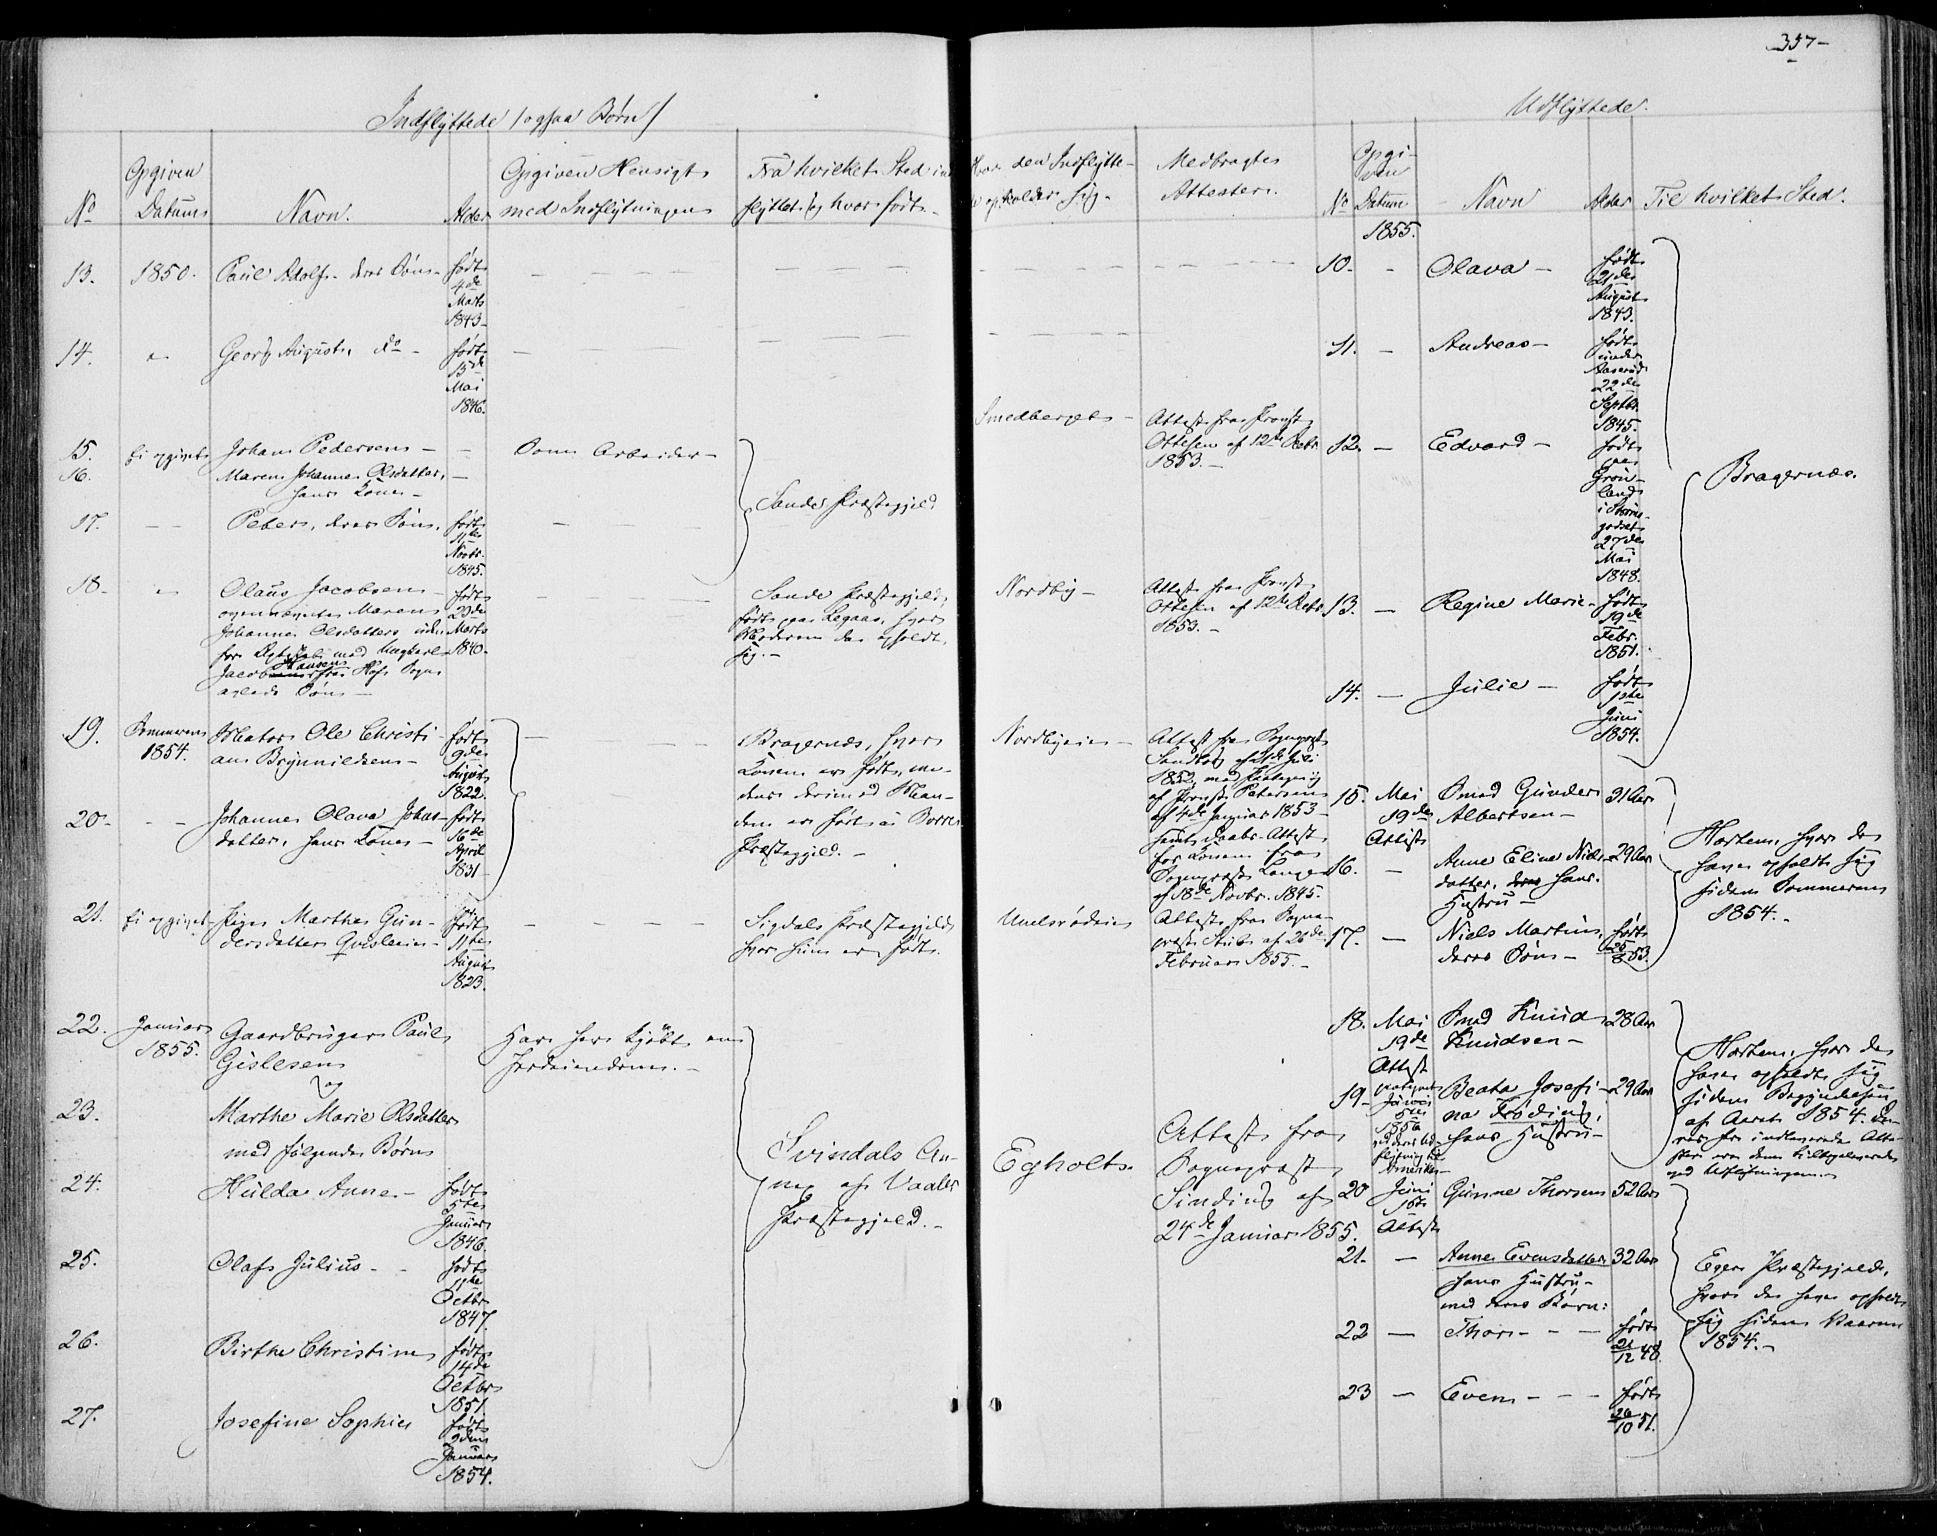 357-
Indflyttede /ogsaa Børn/
No
Opgiven
Datum
Navn.
Alder
Opgiven Hensigt
med Indflytningen
Fra hvilket Sted ind
flyttet og hvor født.
13.
1850.
Paul Adolf deres Søn
født
4de
Marts
1843
14.
Georg August, do
født
13de
Mai
1846.
15.
Ei opgivet
Johan Pedersen
Som Arbeider
16.
Maren Johanne Olsdatter,
hans Kone
17.
Peter, deres Søn,
født
11te
Novbr.
1845.
Sande Præstegjeld
18.
Olaus Jacobsen
ovennævnte Maren
Johanne Olsdatters uden
for Ægteskab med Ungkarl
Jacob Hansen fra Hofs Sogn
avlede Søn
født
29de
Marts
1840
Sande Præstegjeld,
født paa hvor
Moderen da opholdt
sig.
19.
Sommeren
1854.
Mator Ole Christi-
an Brynnildsen
født
9de
August
1822.
Bragernæs, hvor
Konen er født, me-
dens derimod Man-
den er født i Borre
Præstegjeld.
20.
Johanne Olava Johns-
datter, hans Kone
født
16de
April
1831
21.
Ei opgivet
Pige Marthe Gun-
dersdatter Qvisleien
født
11te
August
1823.
Sigdals Præstegjeld,
hvor hun er født.
22.
Januar
1855.
Gaardbruger Paul
Gislesen
og
Har her kjøbt en
Jordeiendom.
23.
Marthe Marie Olsdatter
med følgende Børn
24.
Hulda Anne
født
5te
Januar
1846.
Svindals An-
nex af Vaaler
Præstegjeld.
25.
Olaf Julius
født
11te
Octbr
1847.
26.
Birthe Christine
født
14de
Octbr
1851.
27.
Josefine Sophie
født
2den
Januar
1854.
Hvor den Indflytte-
de opholder sig.
Medbragte
Attester.
Smedberget
Attest fra Provst
Ottesen af 12te Octbr
1853.
Nordby
Attest fra Provst
Ottesen af 12te Octbr
1853.
Nordbyeie
Attest fra Sognepræst
Sandberg af 1de Juli
1852, med Paategning
af Provst Petersen
af 4de Januar 1853
samt Daabs-Attest
for Konen fra
Sognepræst Lange
af 18de Novbr. 1845.
Unelsrødeie
Attest fra Sogne-
præst Stub af 26de
Februar 1855.
Egholt
Attest fra
Sognepræst
Sinding af
24de Januar 1855.
Udflyttede.
No
Opgi-
ven
Datum
1855.
Navn
Alder
Til hvilket Sted.
10.
Olava
født
21de
August
1843.
11.
Andreas
født
under
Aaserud
22de
Septbr.
1845
12.
Edvard
født
paa
Grøn-
land
i Strøms-
godset
27de
Mai
1848.
Bragernæs.
13.
Regine Marie
født
19de
Febr.
1851.
14.
Julie
født
1ste
Juni
1854.
15.
Mai
19de
Attest
Smed Gunder
Albertsen
31 Aar
16.
Anne Eline Niels-
datter, hans
Hustru
29 Aar
Horten, hvor de
have opholdt sig
siden Sommeren
1854.
17.
Niels Martin,
deres Søn
født
25/8 53.
18.
Mai
19de
Attest
Smed Knud
Knudsen
28 Aar
19.
Beata Josefi-
na Frøding,
hans Hustru
29 Aar
Horten, hvor de
have opholdt sig
siden Begyndelsen
af Aaret 1854.
20
Juni
16de
Attest
Gunne Thorsen
52 Aar
21.
Anne Evensdatter
hans Hustru
med deres Børn:
32 Aar
22
Thor
født
21/12 48.
Egers Præstegjeld,
hvor de have opholdt
sig siden Vaaren
1854.
23
Even
født
26/10 51.